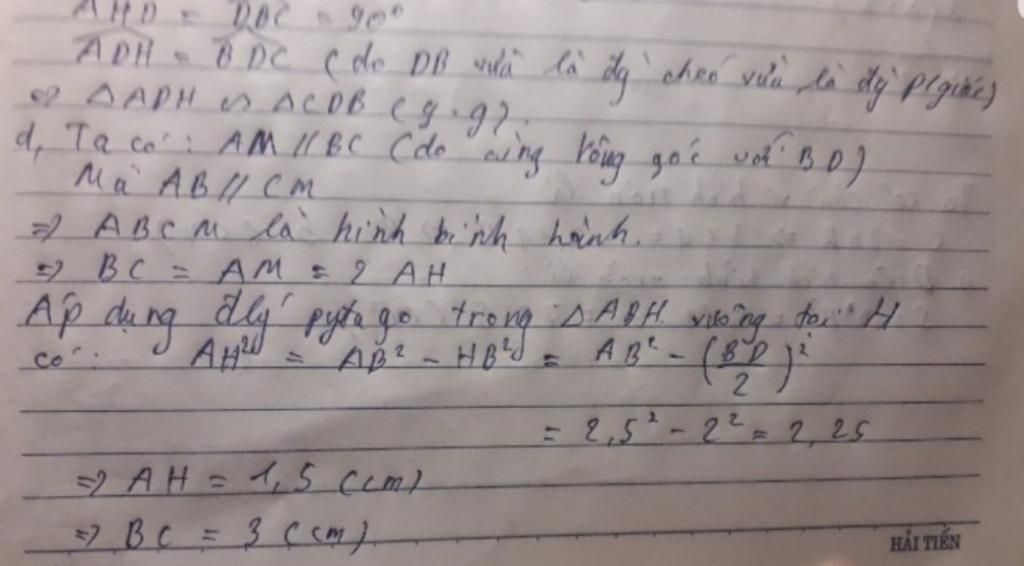 AHD = DBC = 90°
ADH = BDC (do DB vừa là đg chéo vừa là đg p/giác)
=> △ADH ∽ △CDB (g.g).
d, Ta có: AM // BC (do cùng vông góc với BD)
Mà AB // CM
=> ABCM là hình bình hành.
=> BC = AM = 2 AH
Áp dụng đlý pytago trong △ABH vuông tại H
có: AH² = AB² - HB² = AB² - (BD/2)²
= 2,5² - 2² = 2,25
=> AH = 1,5 (cm)
=> BC = 3 (cm)
HẢI TIẾN